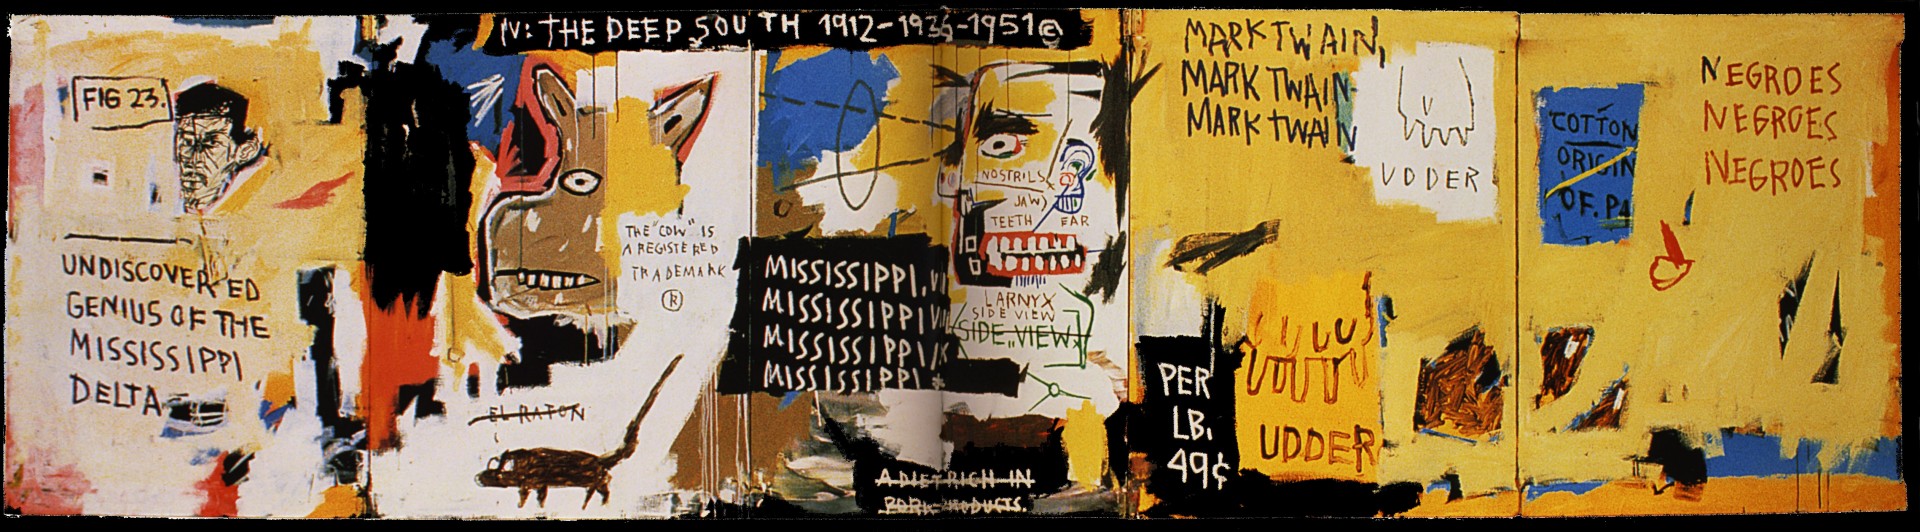 IV: THE DEEP SOUTH 1912-1936-1951@
FIG 23.
UNDISCOVERED
GENIUS OF THE
MISSISSIPPI
DELTA
THE "COW" IS
A REGISTERED
TRADEMARK
®
EL RATON
NOSTRILS
JAW)
TEETH
EAR
MISSISSIPPI
MISSISSIPPI
MISSISSIPPI
MISSISSIPPI *
LARNYX
SIDE VIEW
SIDE VIEW
A DIET RICH IN
PORK PRODUCTS.
MARK TWAIN,
MARK TWAIN
MARK TWAIN
UDDER
PER
LB.
49¢
UDDER
COTTON
ORIGIN
OF. PA
NEGROES
NEGROES
NEGROES